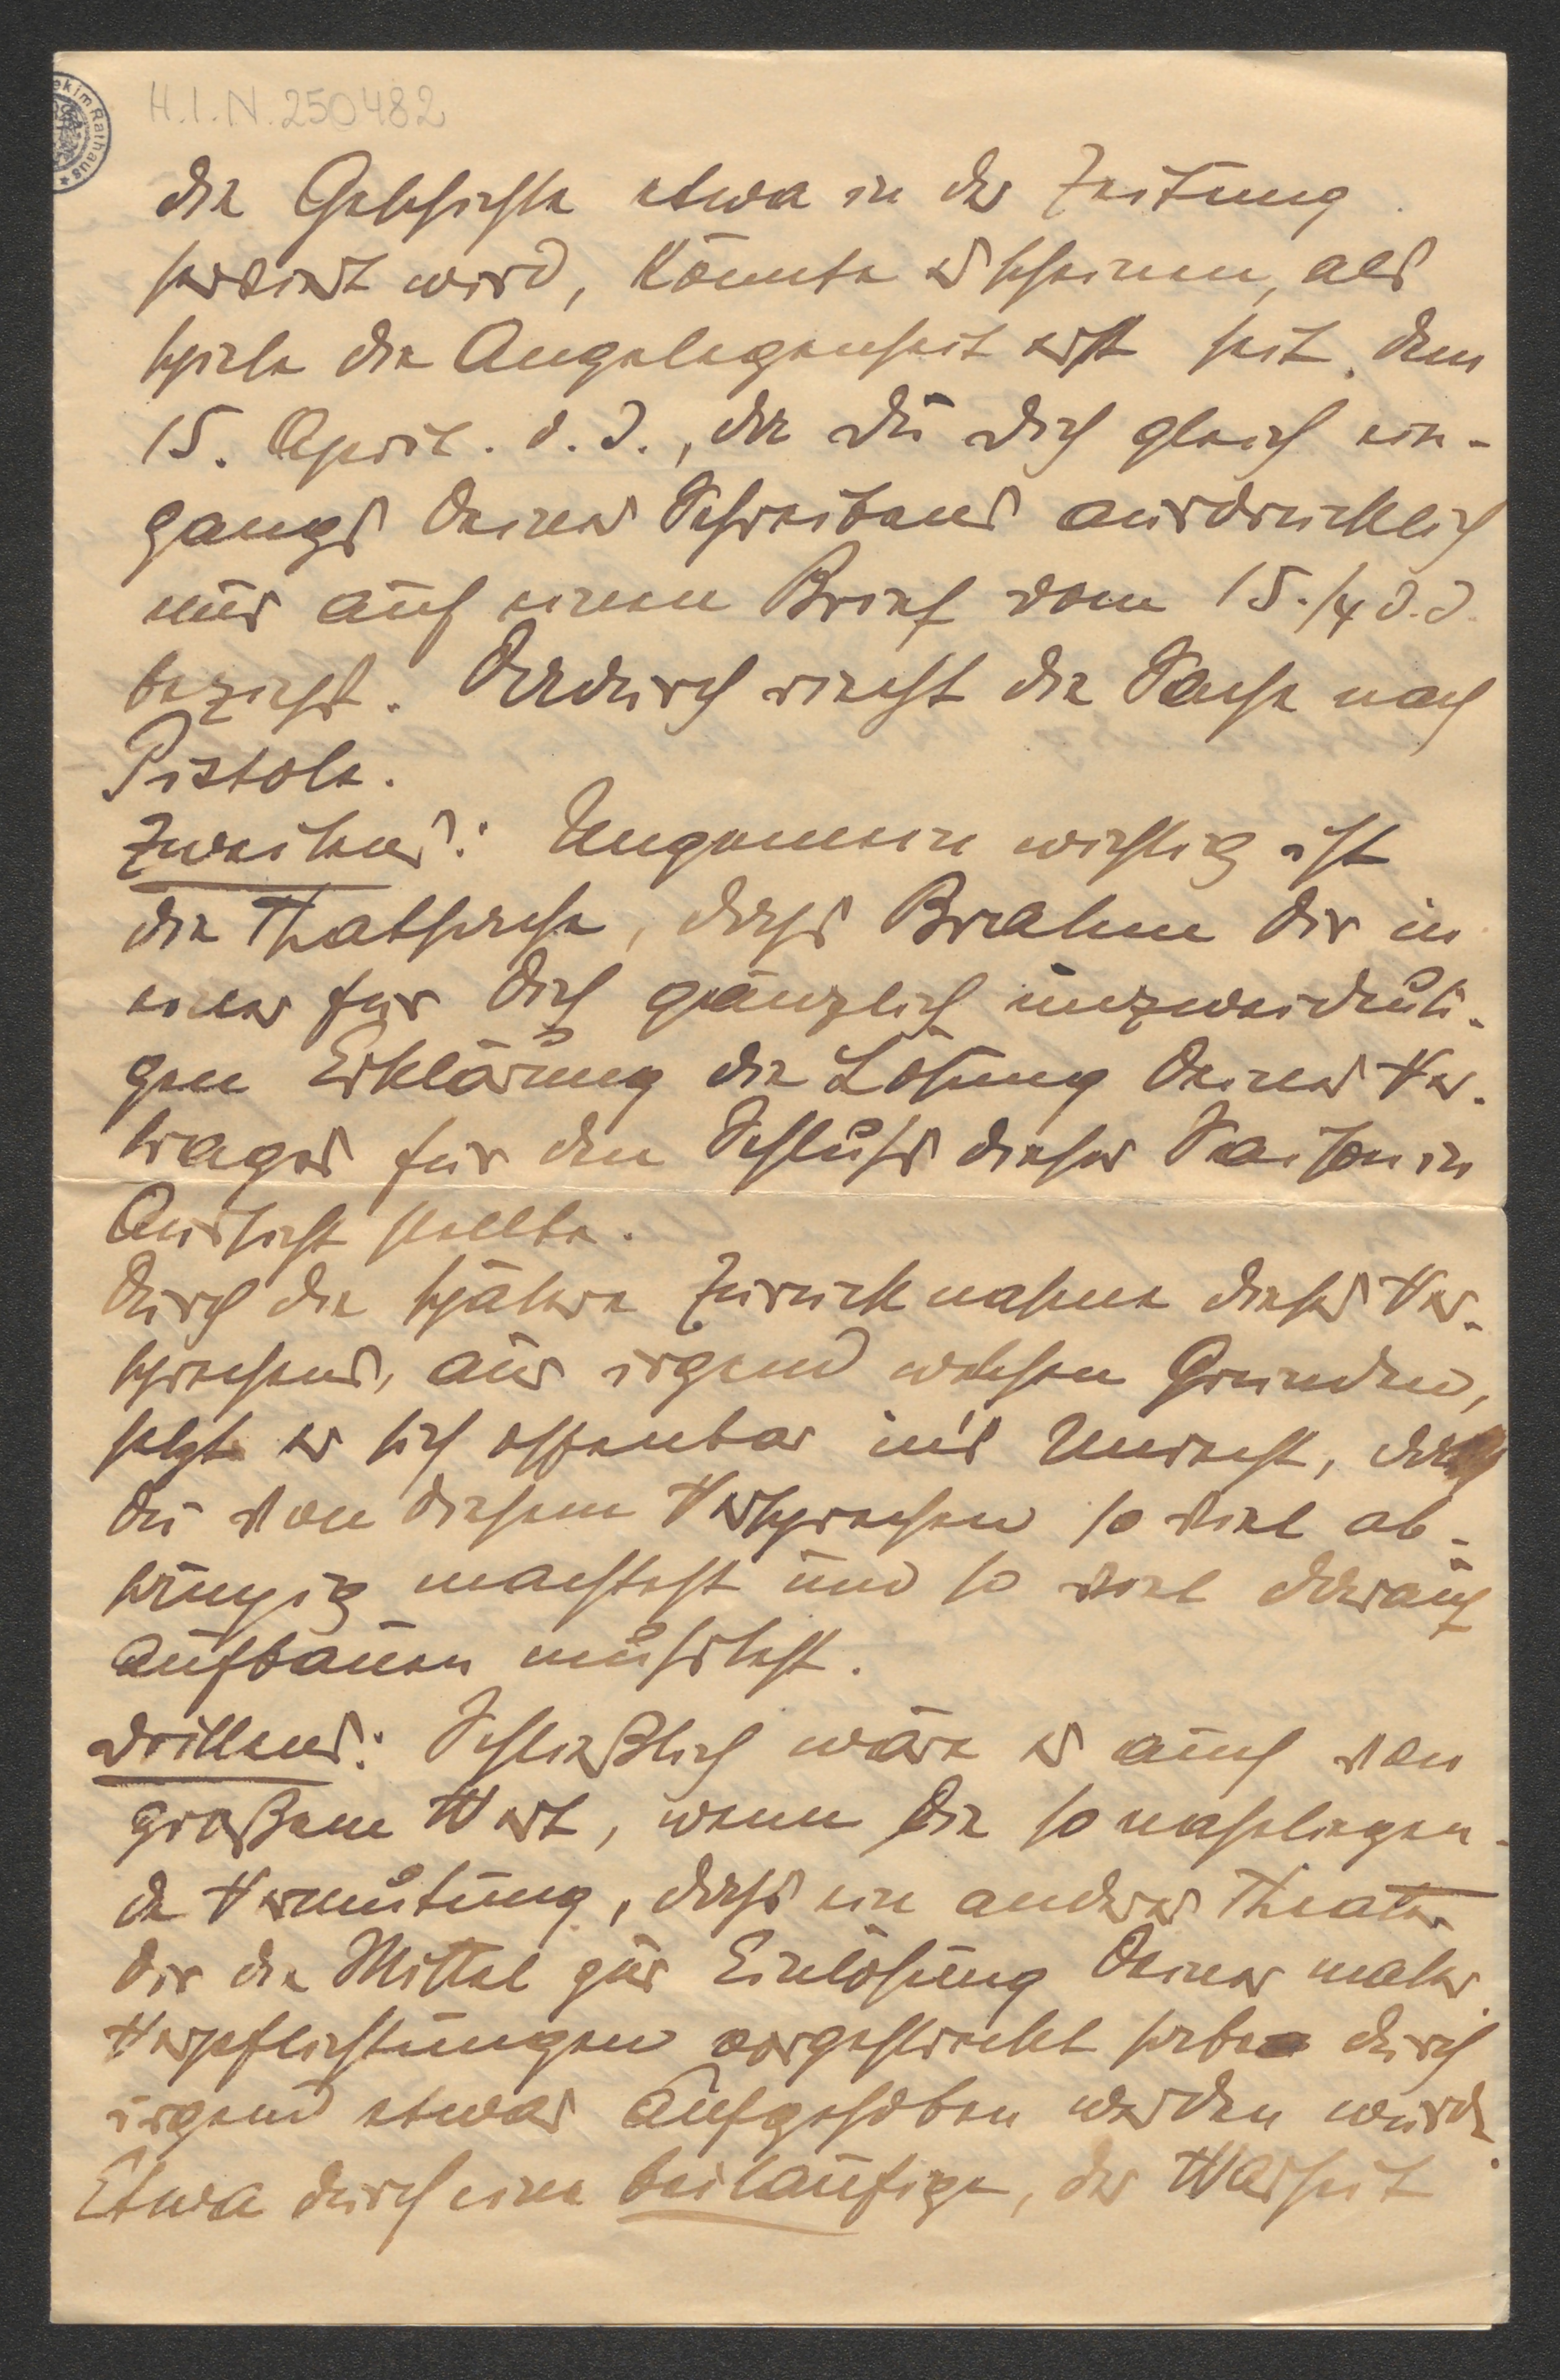 H.I.N. 250482
ekim Rathaus *
die Geschichte etwa in der Zeitung
serviert wird, könnte es scheinen, als
spiele die Angelegenheit erst seit dem
15. April. d. J., da Du Dich gleich ein-
gangs Deines Schreibens ausdrücklich
nur auf einen Brief vom 15./4 d. J.
beziehst. Dadurch riecht die Sache nach
Pistole.
Zweitens: Ungemein wichtig ist
die Thatsache, dass Brahm Dir in
einer für Dich gänzlich unzweideuti-
gen Erklärung die Lösung Deines Ver-
trages für den Schluss dieser Saison in
Aussicht stellte.
Durch die spätere Zurücknahme dieses Ver-
sprechens, aus irgend welchen Gründen,
setzt er sich offenbar in's Unrecht, da
Du von diesem Versprechen so viel ab-
hängig machtest und so viel darauf
aufbauen musstest.
Drittens: Schließlich wäre es auch von
großem Wert, wenn die so naheliegen-
de Vermutung, dass ein anderes Theater
Dir die Mittel zur Einlösung Deiner mater.
Verpflichtungen vorgestreckt habe durch
irgend etwas aufgehoben werden würde.
Etwa durch eine beiläufige, der Warheit